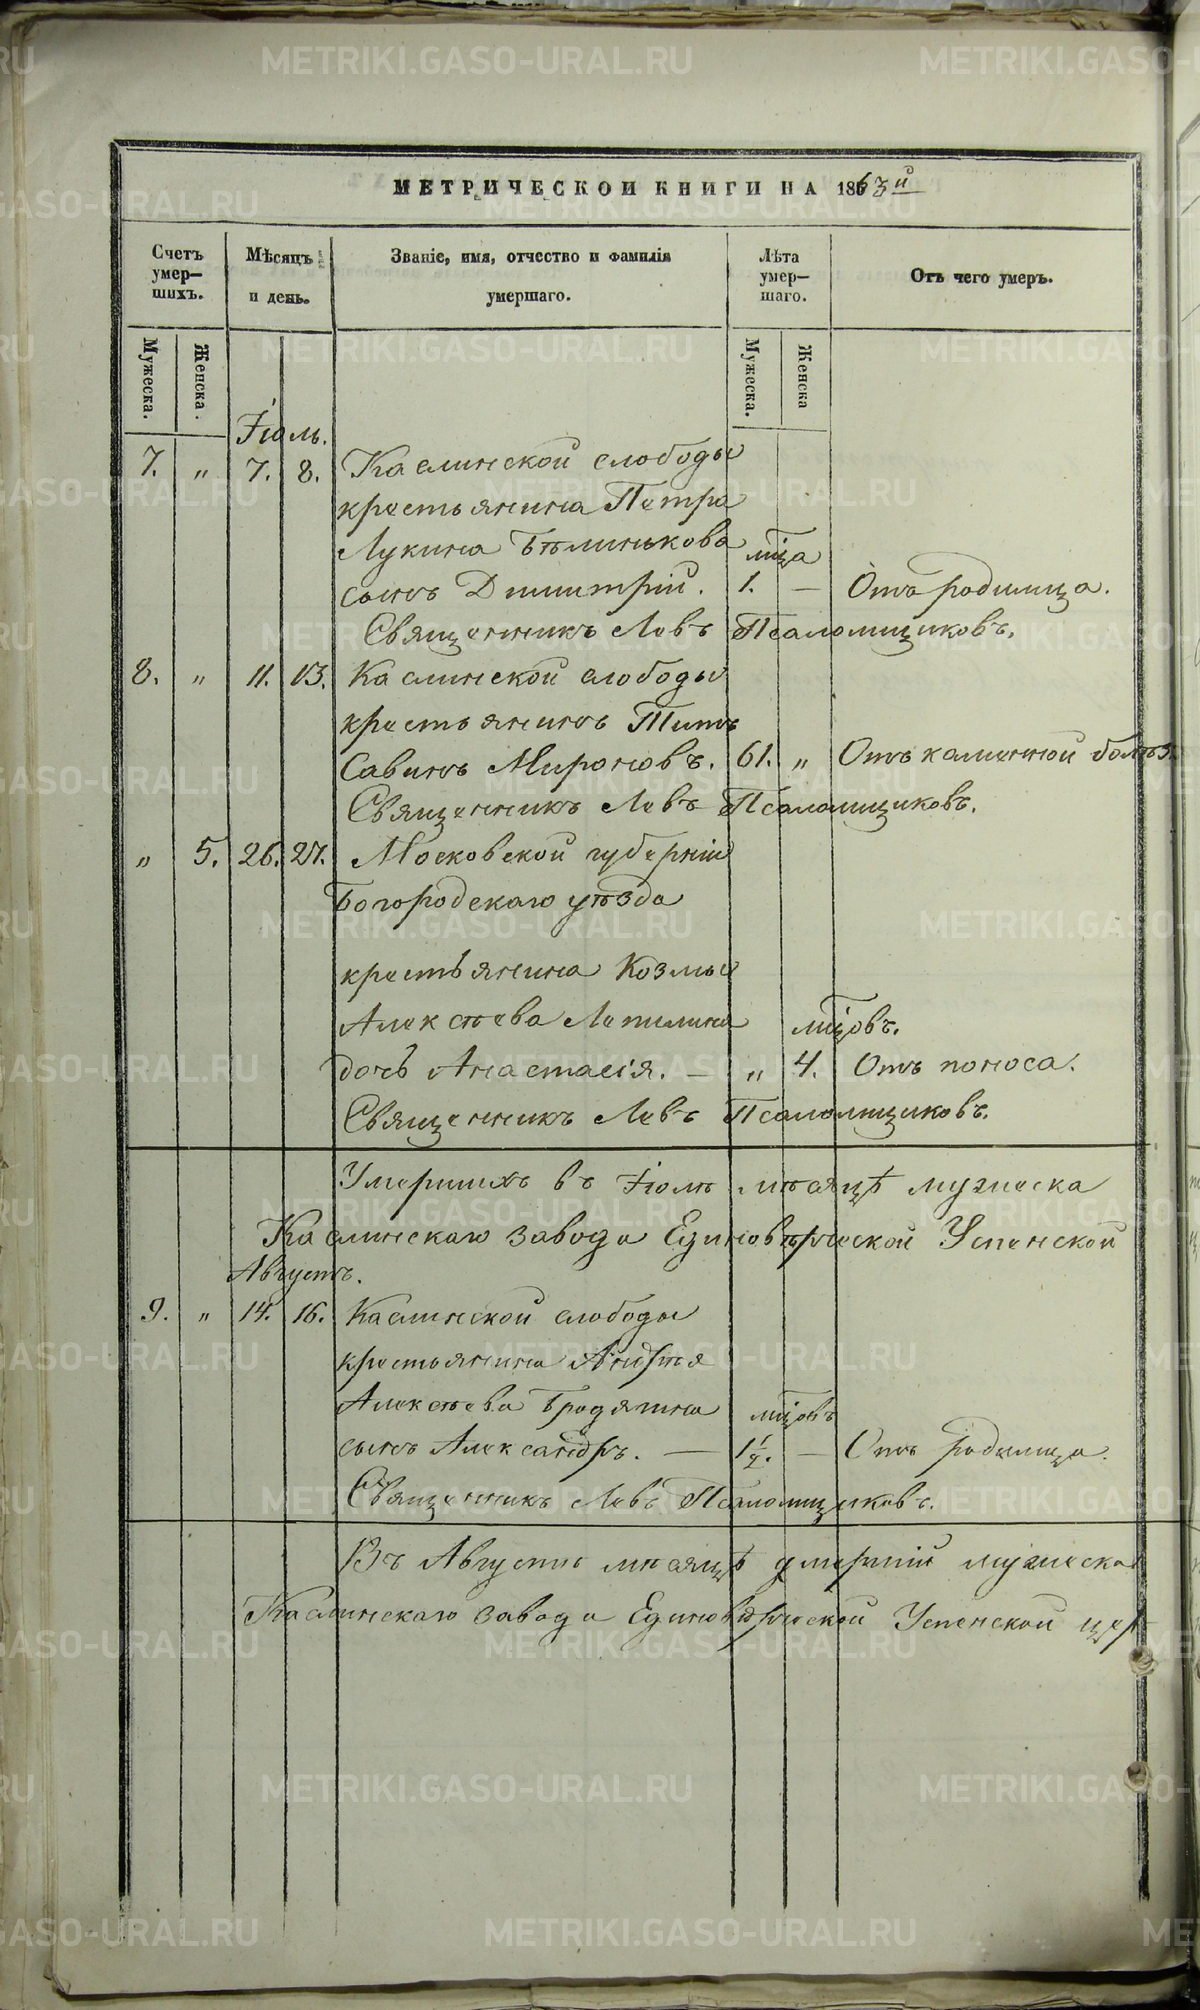 МЕТРИЧЕСКОЙ КНИГИ НА 1863й
Счетъ умер—шихъ.
Мѣсяцъ и день.
Званіе, имя, отчество и фамилія умершаго.
Лѣта умер—шаго.
Отъ чего умеръ.
Мужеска. Женска. Мужеска. Женска
Іюль.
7. „ 7. 8. Каслинской слободы
крестьянина Петра
Лукина Бѣлинькова мца
сынъ Димитрій. 1. — Отъ родимца.
Священникъ Левъ Псаломщиковъ.
8. „ 11. 13. Каслинской слободы
крестьянинъ Титъ
Савинъ Мироновъ. 61. „ Отъ каменной болѣз.
Священникъ Левъ Псаломщиковъ.
„ 5. 26. 27. Московской губерніи
Богородскаго уѣзда
крестьянина Козмы
Алексѣева Лепилина мцовъ.
дочь Анастасія. — „ 4. Отъ поноса.
Священникъ Левъ Псаломщиковъ.
Умершихъ въ Іюлѣ мѣсяцѣ мужеска
Каслинскаго завода Единовѣрческой Успенской
Августъ.
9. „ 14. 16. Каслинской слободы
крестьянина Андрѣя
Алексѣева Бродягина мцовъ
сынъ Александръ. — 1½. — Отъ родимца.
Священникъ Левъ Псаломщиковъ.
Въ Августѣ мѣсяцѣ умершій мужеска
Каслинскаго завода Единовѣрческой Успенской цер
METRIKI.GASO-URAL.RU